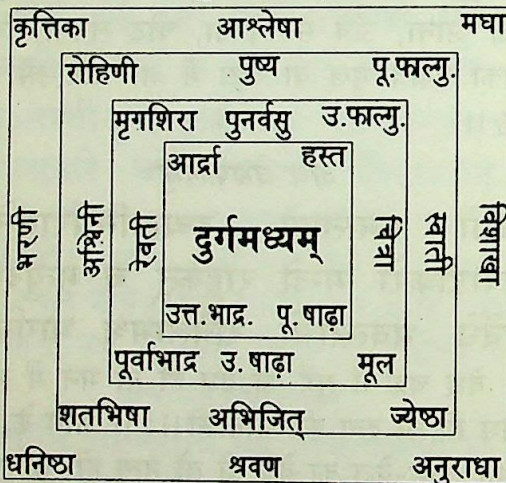 कृत्तिका आश्लेषा मघा
रोहिणी पुष्य पू.फाल्गु.
मृगशिरा पुनर्वसु उ.फाल्गु.
आर्द्रा हस्त
भरणी अश्विनी रेवती दुर्गमध्यम् चित्रा स्वाती विशाखा
उत्त.भाद्र. पू. षाढ़ा
पूर्वाभाद्र उ. षाढ़ा मूल
शतभिषा अभिजित् ज्येष्ठा
धनिष्ठा श्रवण अनुराधा